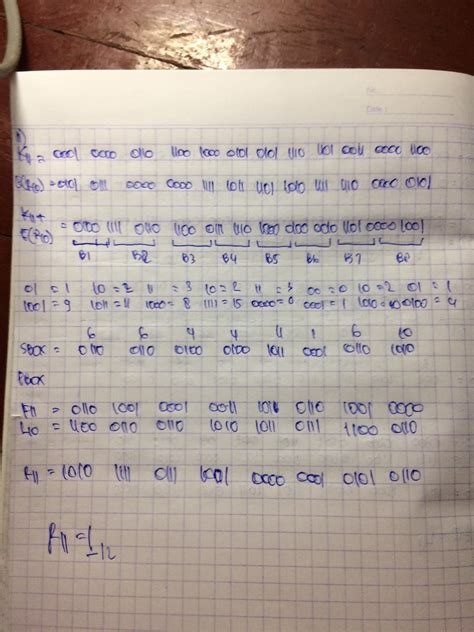 No.
Date:
K11 = 0001 0000 0110 1100 1000 0101 0101 1110 1101 0011 0000 1100
E(R10) = 0101 0111 0000 0000 1111 1011 1101 1010 1111 1110 0000 0101
K11 +
E(R10) = 0100 1111 0110 1100 0111 1110 1000 0100 0010 1101 0000 1001
B1 B2 B3 B4 B5 B6 B7 B8
01 = 1 10 = 2 11 = 3 10 = 2 11 = 3 00 = 0 10 = 2 01 = 1
1001 = 9 1011 = 11 1000 = 8 1111 = 15 0000 = 0 0001 = 1 1010 = 10 0100 = 4
6 6 4 4 11 1 6 10
SBOX = 0110 0110 0100 0100 1011 0001 0110 1010
PBOX
F11 = 0110 1001 0001 0011 1011 0110 1001 0000
L10 = 1100 0110 0110 1010 1011 0111 1100 0110
R11 = 1010 1111 0111 1001 0000 0001 0101 0110
R11 = L12